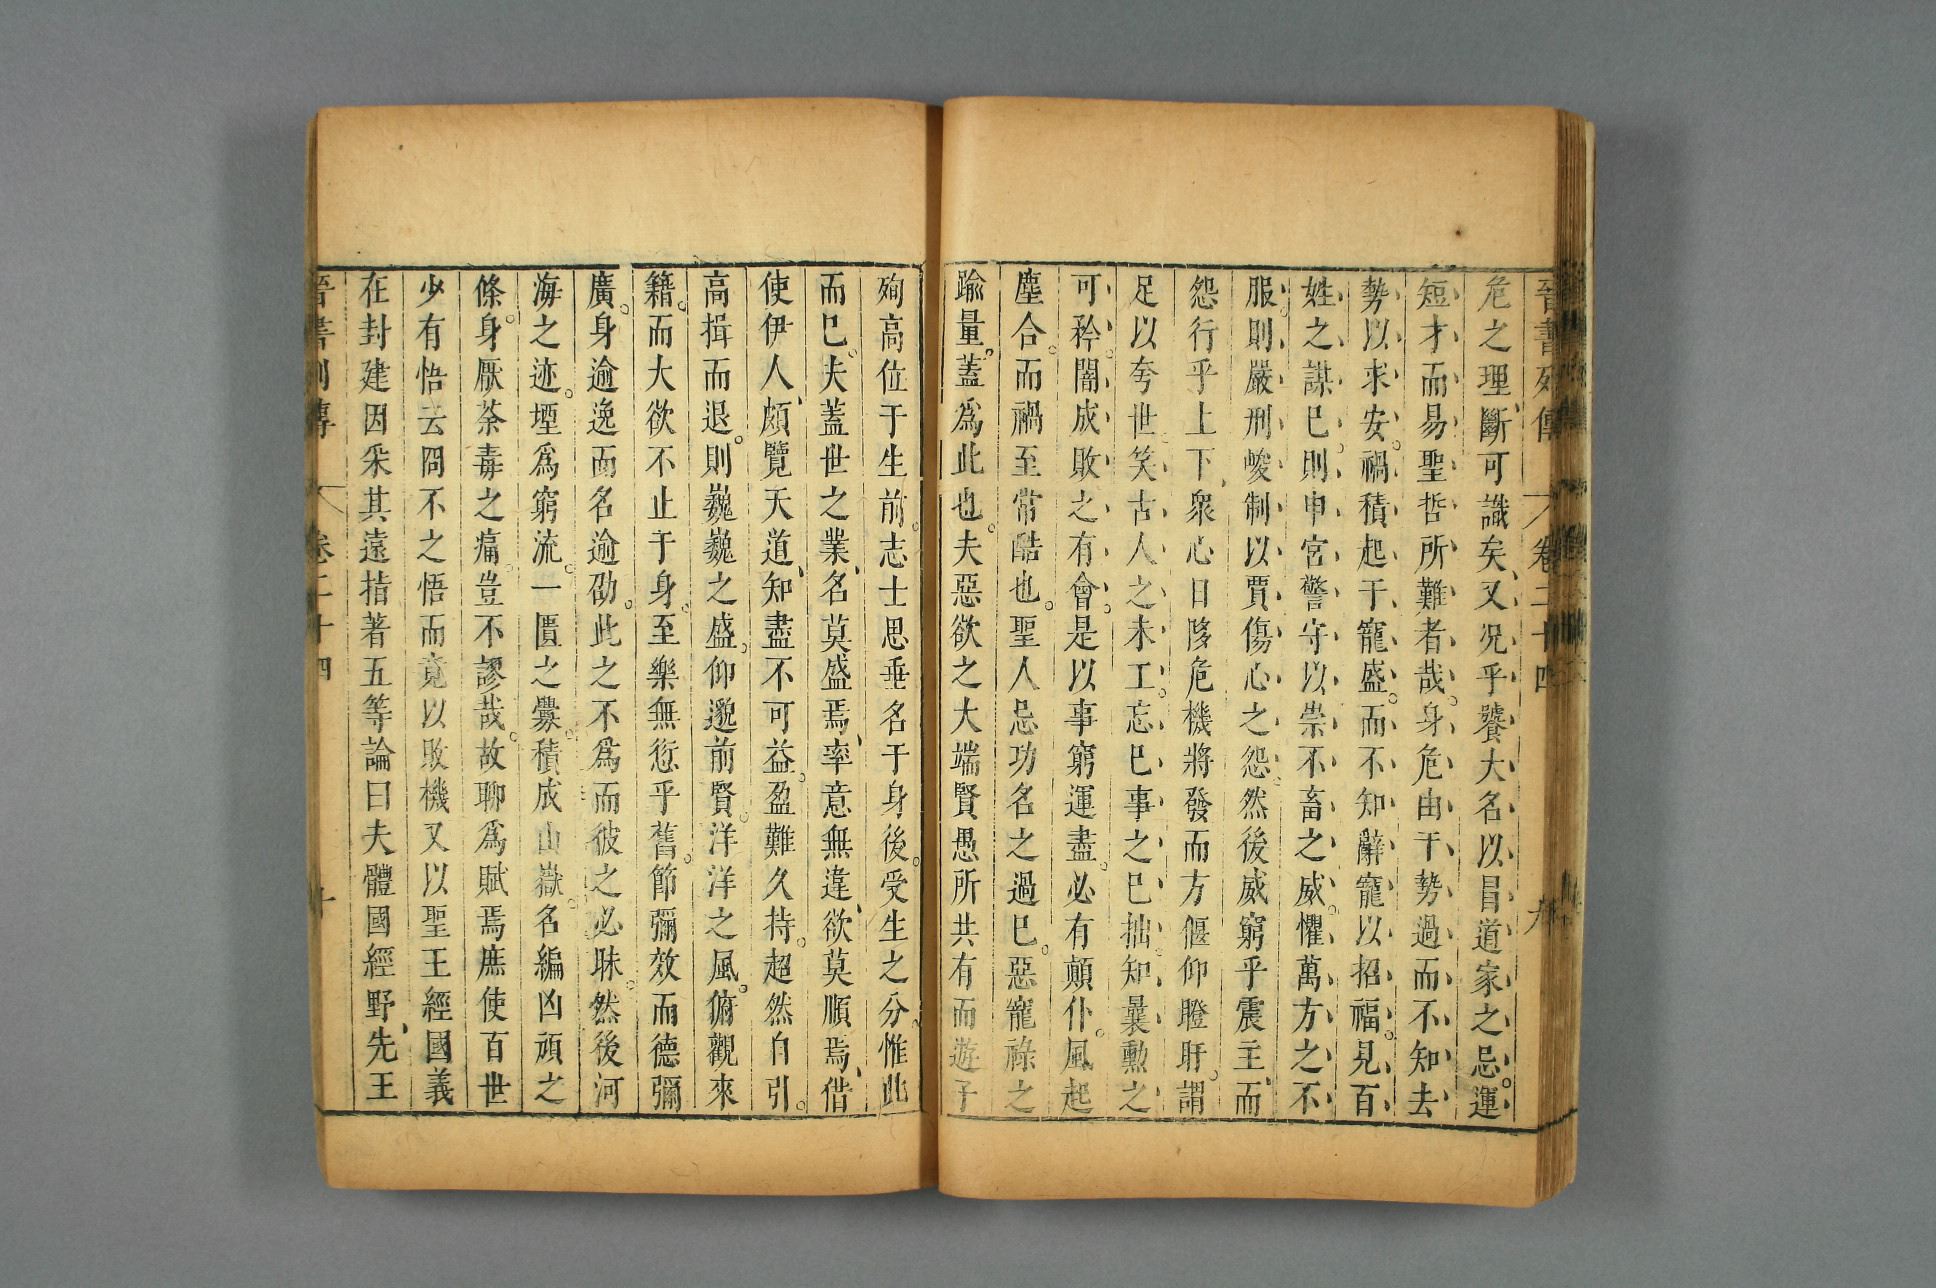 晉書列傳 卷二十四 九
危之理斷可識矣又况乎饕大名以冒道家之忌運
短才而易聖哲所難者哉身危由于勢過而不知去
勢以求安禍積起于寵盛而不知辭寵以招福見百
姓之謀已則申宮警守以崇不畜之威懼萬方之不
服則嚴刑峻制以賈傷心之怨然後威窮乎震主而
怨行乎上下衆心日陊危機將發而方偃仰瞪盱謂
足以夸世笑古人之未工忘已事之已拙知曩勲之
可矜闇成敗之有會是以事窮運盡必有顛仆風起
塵合而禍至常酷也聖人忌功名之過已惡寵祿之
踰量蓋爲此也夫惡欲之大端賢愚所共有而遊子
殉高位于生前志士思垂名于身後受生之分惟此
而已夫蓋世之業名莫盛焉率意無違欲莫順焉借
使伊人頗覽天道知盡不可益盈難久持超然自引
高揖而退則巍巍之盛仰邈前賢洋洋之風俯觀來
籍而大欲不止于身至樂無愆乎舊節彌效而德彌
廣身逾逸而名逾劭此之不爲而彼之必昧然後河
海之迹堙爲窮流一匱之釁積成山嶽名編凶頑之
條身厭荼毒之痛豈不謬哉故聊爲賦焉庶使百世
少有悟云冏不之悟而竟以敗機又以聖王經國義
在封建因采其遠指著五等論曰夫體國經野先王
晉書列傳 卷二十四 十